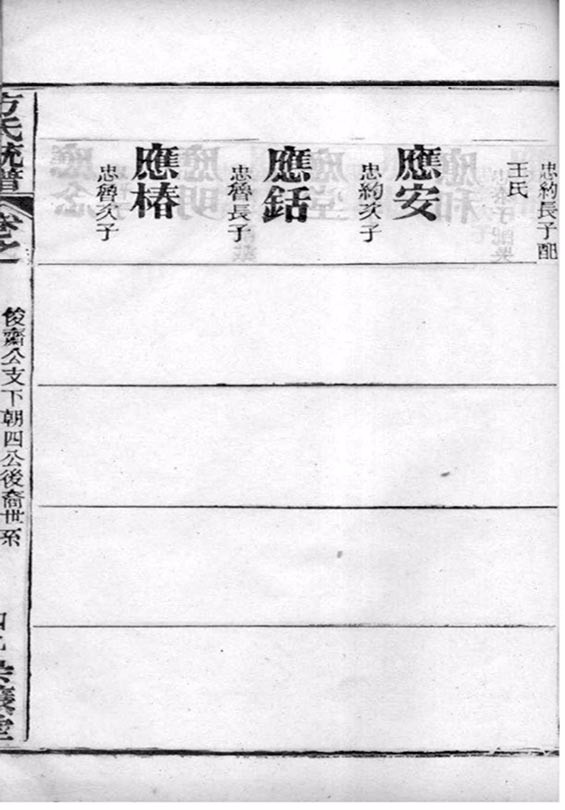 忠約長子配
王氏
應安
忠約次子
應銛
忠魯長子
應椿
忠魯次子
方氏統譜
卷之
俊齋公支下朝四公後裔世系